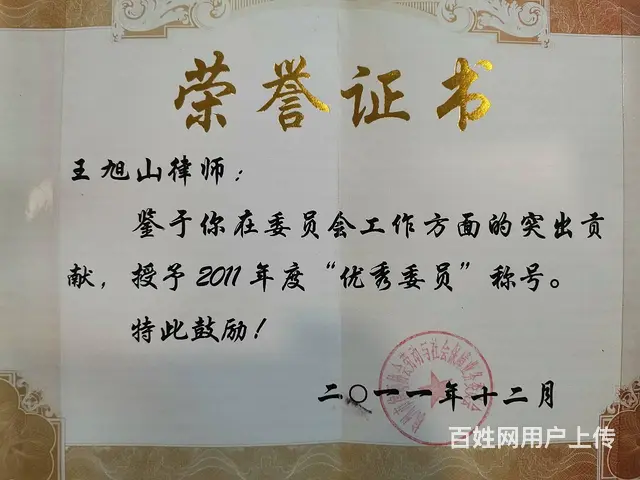 荣誉证书
王旭山律师：
鉴于你在委员会工作方面的突出贡
献，授予2011年度“优秀委员”称号。
特此鼓励！
二〇一一年十二月
百姓网用户上传